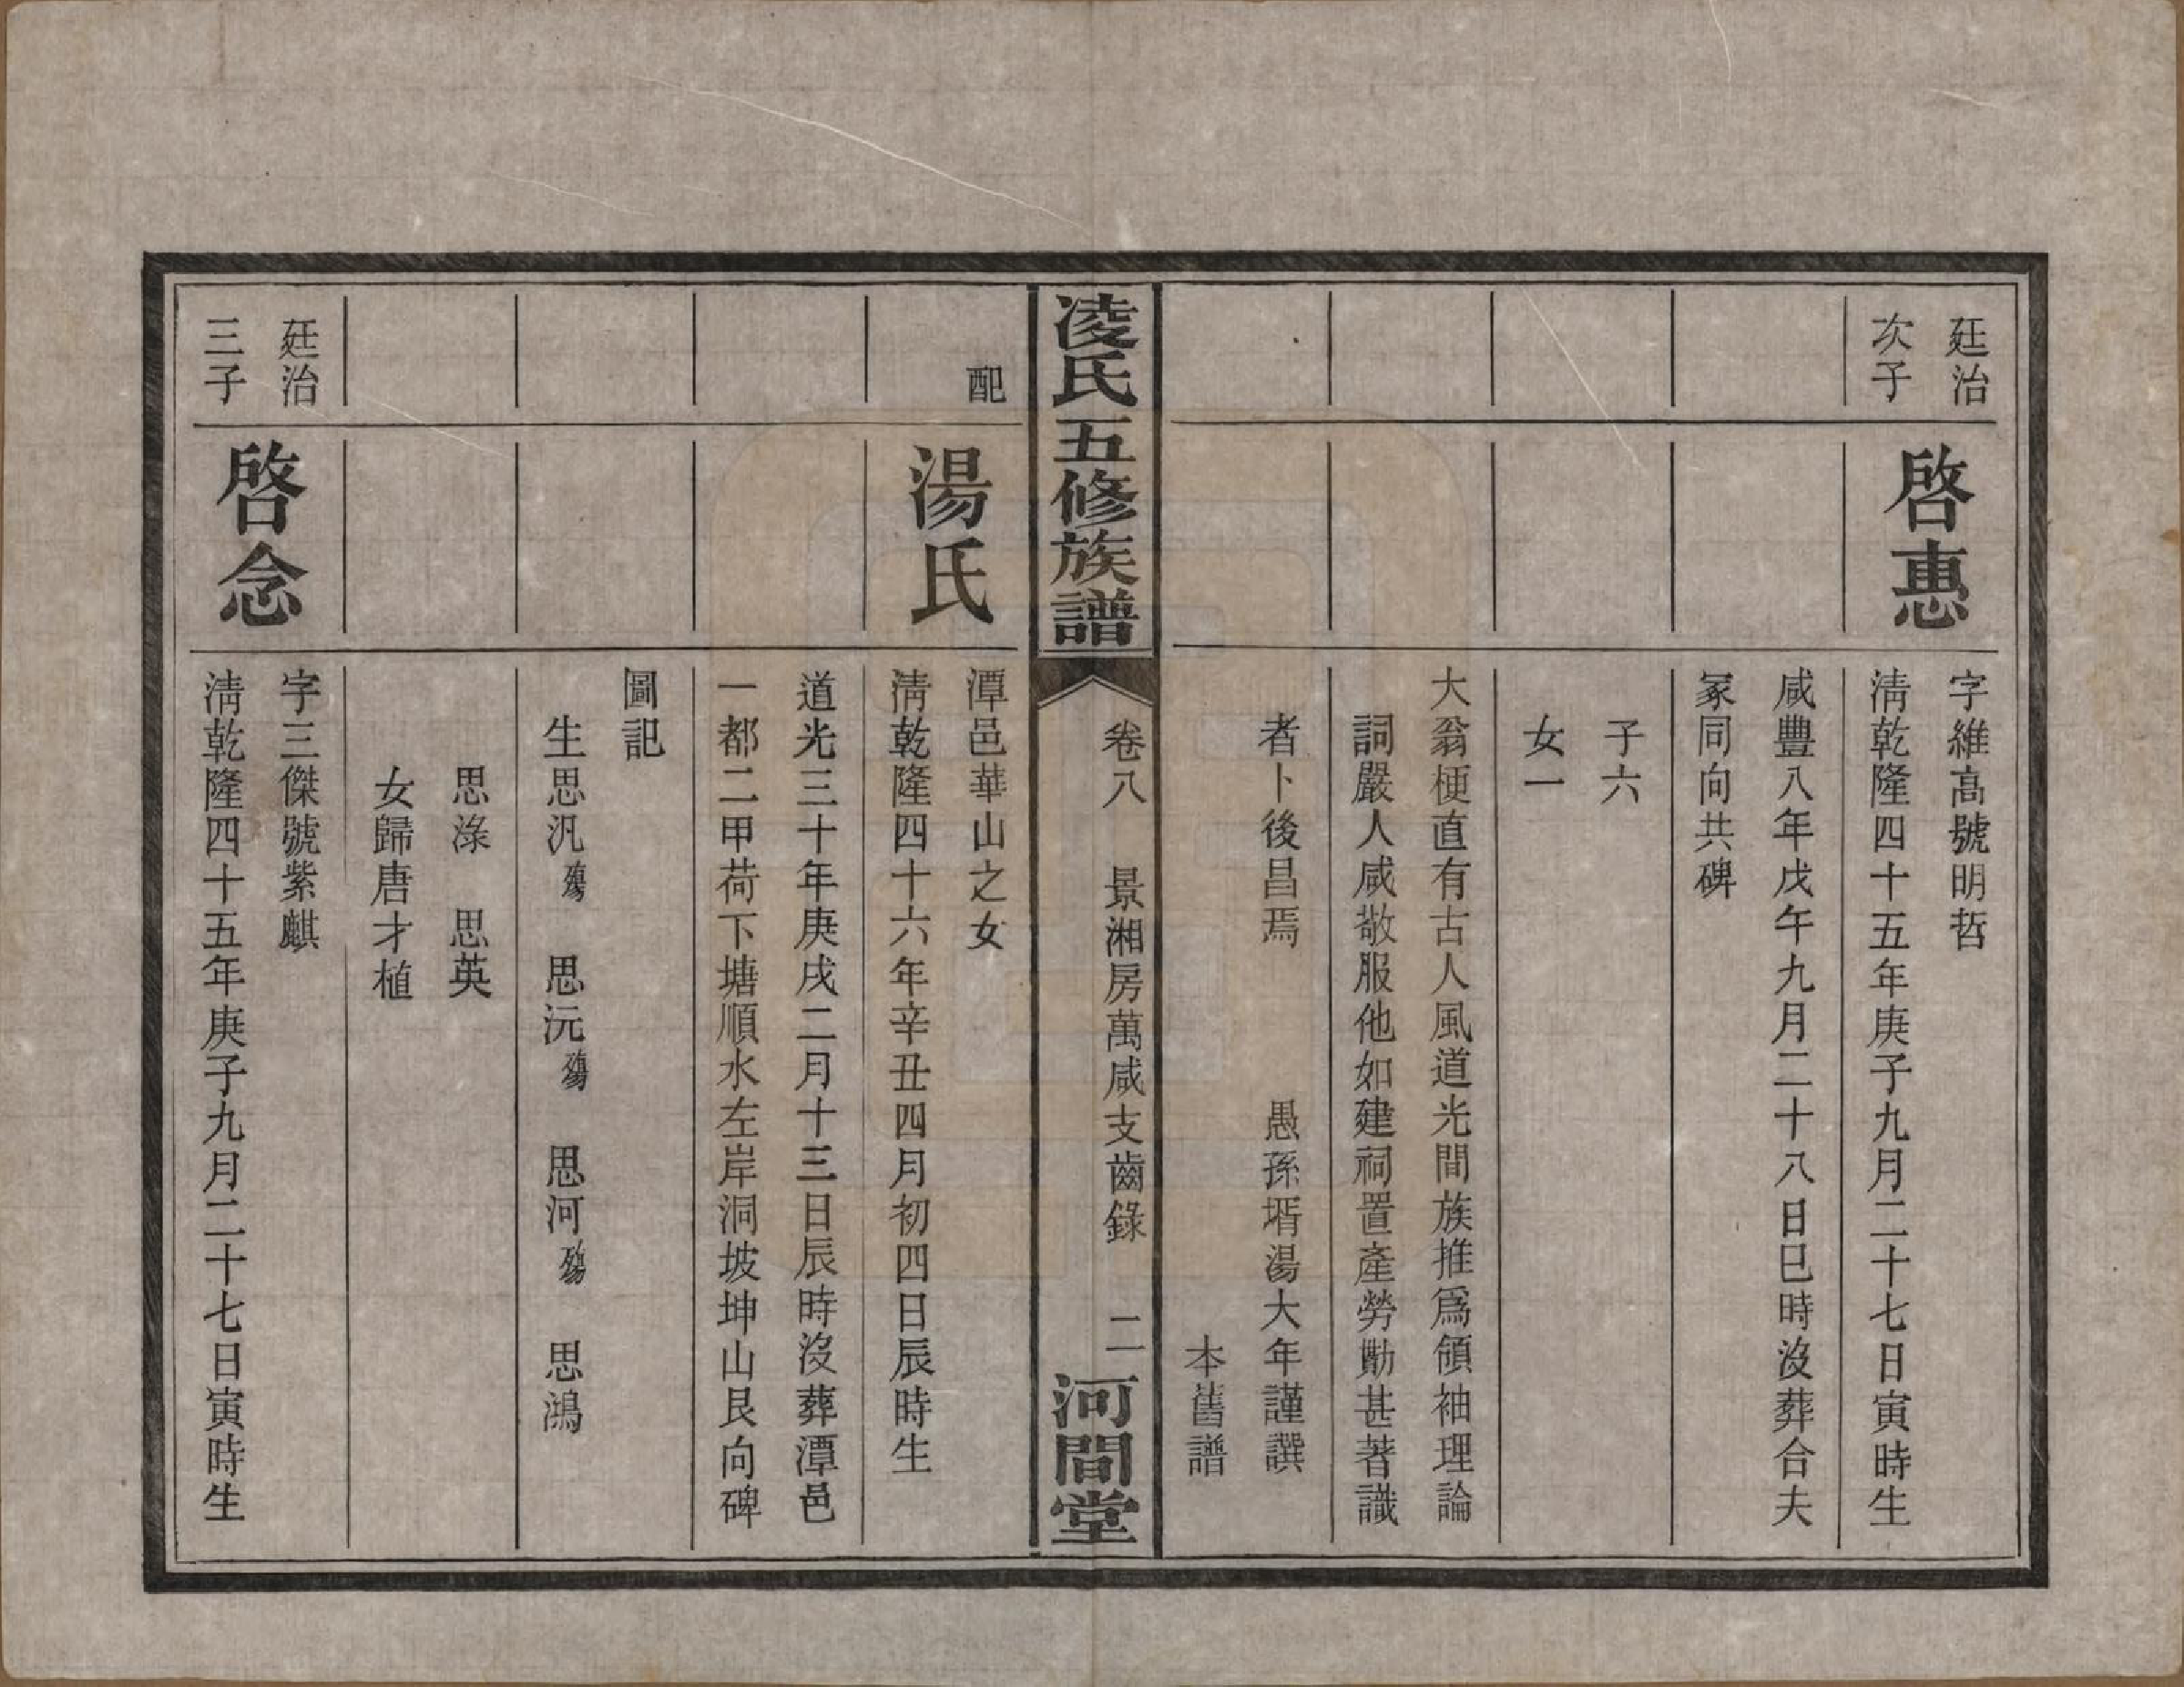 廷治
次子
啓惠
字維高號明哲
淸乾隆四十五年庚子九月二十七日寅時生
咸豐八年戊午九月二十八日巳時沒葬合夫
冢同向共碑
子六
女一
大翁梗直有古人風道光間族推爲領袖理論
詞嚴人咸敬服他如建祠置產勞勩甚著識
者卜後昌焉　愚孫壻湯大年謹譔
本舊譜
凌氏五修族譜
卷八　景湘房萬咸支齒錄　二
河間堂
配
湯氏
潭邑華山之女
淸乾隆四十六年辛丑四月初四日辰時生
道光三十年庚戌二月十三日辰時沒葬潭邑
一都二甲荷下塘順水左岸洞坡坤山艮向碑
圖記
生思汎殤　思沅殤　思河殤　思鴻
思淥　思英
女歸唐才植
廷治
三子
啓念
字三傑號紫麒
淸乾隆四十五年庚子九月二十七日寅時生